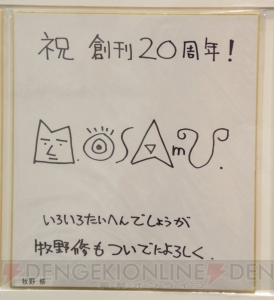 祝 創刊20周年!
M.OSAMU.
いろいろたいへんでしょうが
牧野修もついでによろしく.
牧野 修
DENGEKIONLINE